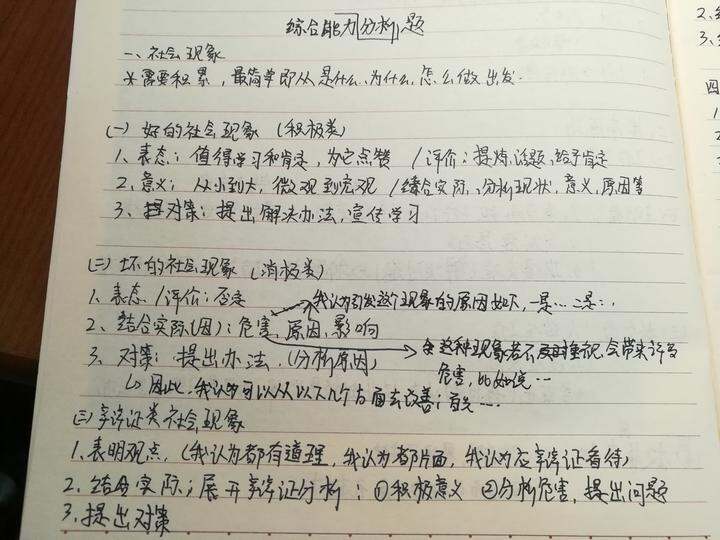 综合能力分析题
一、社会现象
*需要积累，最简单即从是什么、为什么、怎么做出发.
(一) 好的社会现象 (积极类)
1、表态；值得学习和肯定，为它点赞 /评价；提炼话题、给予肯定
2、意义；从小到大，微观到宏观 /结合实际、分析现状，意义、原因等
3、对策；提出解决办法，宣传学习
(二) 坏的社会现象 (消极类)
1、表态/评价；否定
我认为引发这个现象的原因如下，一是…二是…
2、结合实际(因)；危害、原因、影响
3、对策；提出办法.(分析原因)
这种现象若不重视，会带来许多
危害，比如说…
因此，我认为可以从以下几个方面去改善；首先…
(三) 辛辩证类社会现象
1、表明观点，(我认为都有道理，我认为都片面，我认为应辛辩证看待)
2、结合实际；展开辛辩证分析：①积极意义 ②分析危害，提出问题
3、提出对策
2.
3.
四
1
2
3